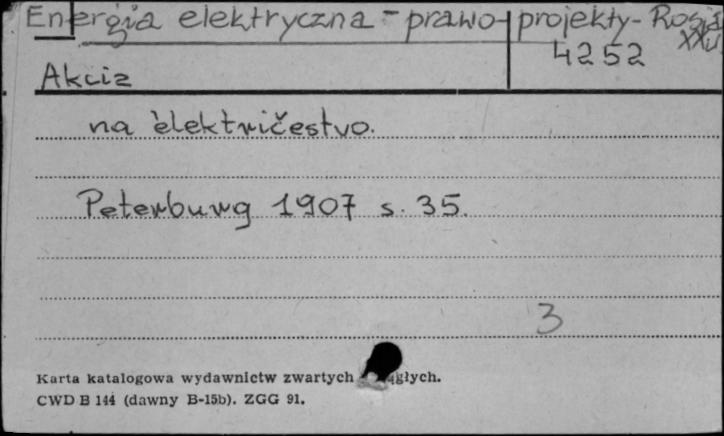 Energia elektryczna - prawo - projekty - Rosja
XXw
4252
Akciz
na èlektričestvo.
Peterburg 1907 s. 35.
3
Karta katalogowa wydawnictw zwartych
CWD B 144 (dawny B-15b). ZGG 91.